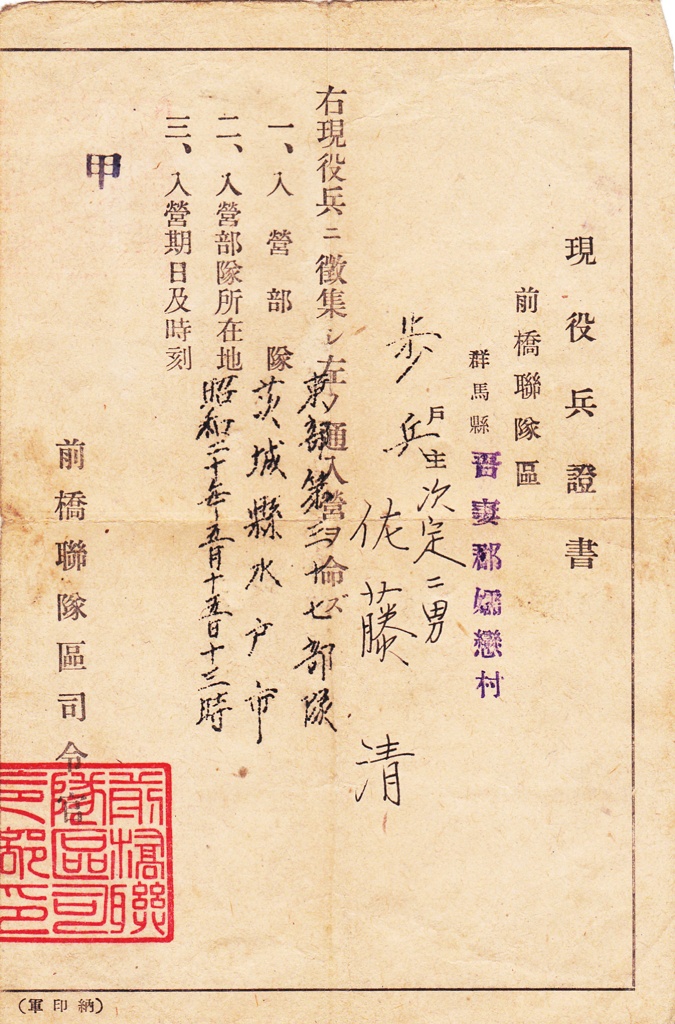 現役兵證書
前橋聯隊區
群馬縣 吾妻郡嬬戀村
戸主 次定 二男
歩兵 佐藤 清
右現役兵ニ徴集シ左ノ通入營ヲ命ズ
一、入營部隊 東部第三十七部隊
二、入營部隊所在地 茨城縣水戸市
三、入營期日及時刻 昭和二十年五月十五日十三時
甲
前橋聯隊區司令官
前橋聯隊區司令部印
(納印軍)